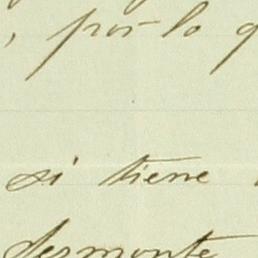 , por lo q
si tiene
desmonte